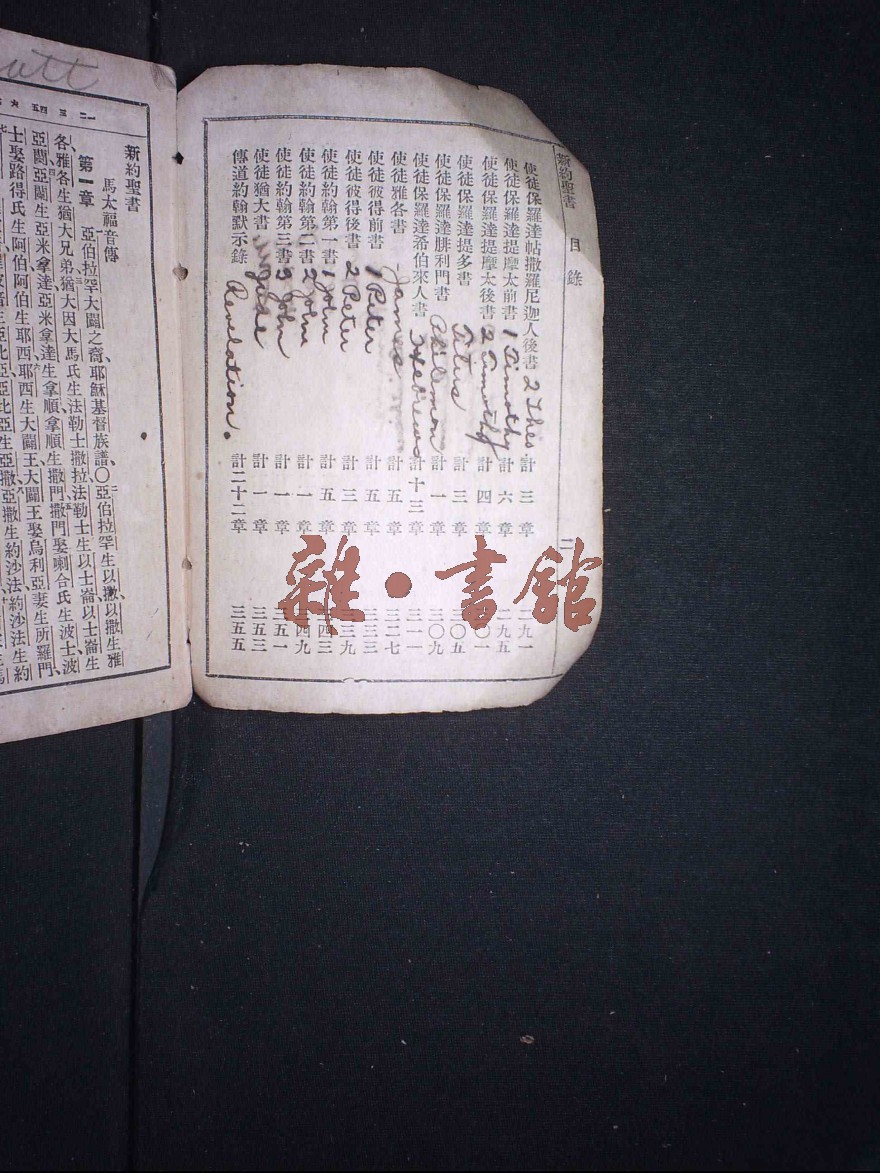 新約聖書 目錄 二
使徒保羅達帖撒羅尼迦人後書 2 Thes 計三章 二九一
使徒保羅達提摩太前書 1 Timothy 計六章 二九五
使徒保羅達提摩太後書 2 Timothy 計四章
使徒保羅達提多書 Titus 計三章
使徒保羅達腓利門書 Philemon 計一章 三〇九
使徒保羅達希伯來人書 Hebrews 計十三章 三一一
使徒雅各書 James 計五章 三二七
使徒彼得前書 1 Peter 計五章 三三三
使徒彼得後書 2 Peter 計三章 三三九
使徒約翰第一書 1 John 計五章 三四三
使徒約翰第二書 2 John 計一章 三四九
使徒約翰第三書 3 John 計一章 三五一
使徒猶大書 Jude 計一章 三五三
傳道約翰默示錄 Revelation. 計二十二章 三五五
雜·書館
att
新約聖書
馬太福音傳
第一章 亞伯拉罕大闢之裔耶穌基督族譜〇亞伯拉罕生以撒以撒生雅
各雅各生猶大兄弟猶大因大馬氏生法勒士撒拉法勒士生以士崙以士崙生
亞蘭亞蘭生亞米拿達亞米拿達生拿順拿順生撒門撒門娶喇合氏生波士波
士娶路得氏生阿伯阿伯生耶西耶西生大闢王大闢王娶烏利亞妻生所羅門